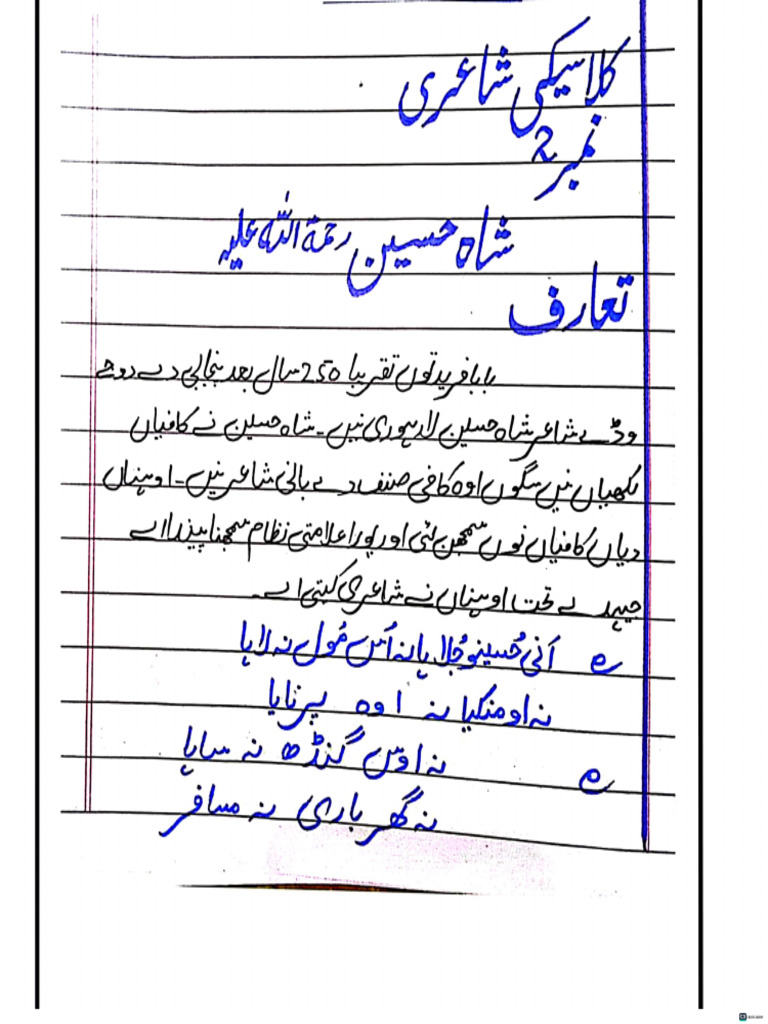 کلاسیکی شاعری
نمبر 2
شاہ حسین رحمۃ اللہ علیہ
تعارف
بابا فرید توں تقریبا 250 سال بعد پنجابی دے دوجے
وڈے شاعر شاہ حسین لاہوری نیں۔ شاہ حسین نے کافیاں
لکھیاں نیں سگوں اوہ کافی صنف دے بانی شاعر نیں۔ اوہناں
دیاں کافیاں نوں سمجھن لئی اور پورا علامتی نظام سمجھنا پیندا اے
جیہدے تحت اوہناں نے شاعری کیتی اے۔
اَنی حُسینو جُلاہا نہ اُس مُول نہ لاہا
نہ او منگیا نہ اوہ پرنایا
نہ اوس گنڈھ نہ سایا
نہ گھر باری نہ مسافر